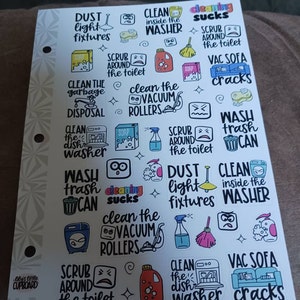 DUST
light
fixtures
CLEAN
inside the
WASHER
cleaning
sucks
SCRUB
AROUND
the toilet
SCRUB
AROUND
the toilet
VAC SOFA
cracks
CLEAN THE
garbage
DISPOSAL
clean the
VACUUM
ROLLERS
WASH
trash
CAN
CLEAN
the
dish
washer
SCRUB
AROUND
the toilet
WASH
trash
CAN
cleaning
sucks
DUST
light
fixtures
CLEAN
inside the
WASHER
clean the
VACUUM
ROLLERS
SCRUB
AROUND
the toilet
CLEAN
the
dish
washer
VAC SOFA
cracks
CUPBOARD